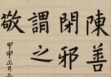 陳善
閉邪
謂之
敬
甲申正月